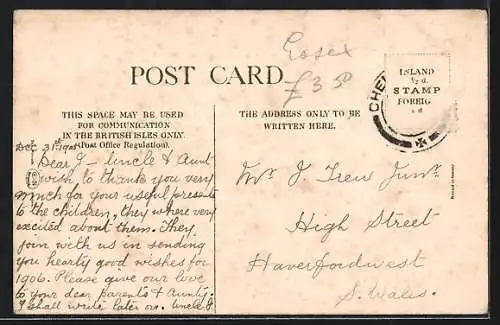 Essex
£3.50
POST CARD.
INLAND
½ d.
STAMP
FOREIG
1 d
CHE
THIS SPACE MAY BE USED
FOR COMMUNICATION
IN THE BRITISH ISLES ONLY.
(Post Office Regulation).
THE ADDRESS ONLY TO BE
WRITTEN HERE.
Dec 31st
Dear J - Uncle & Aunt
wish to thank you very
much for your useful presents
to the children, they where very
excited about them. They
join with us in sending
you hearty good wishes for
1906. Please give our love
to your dear parents & Aunty.
I shall write later on. Uncle J
Mr. J. Trew Junr.
High Street
Haverfordwest
S. Wales.